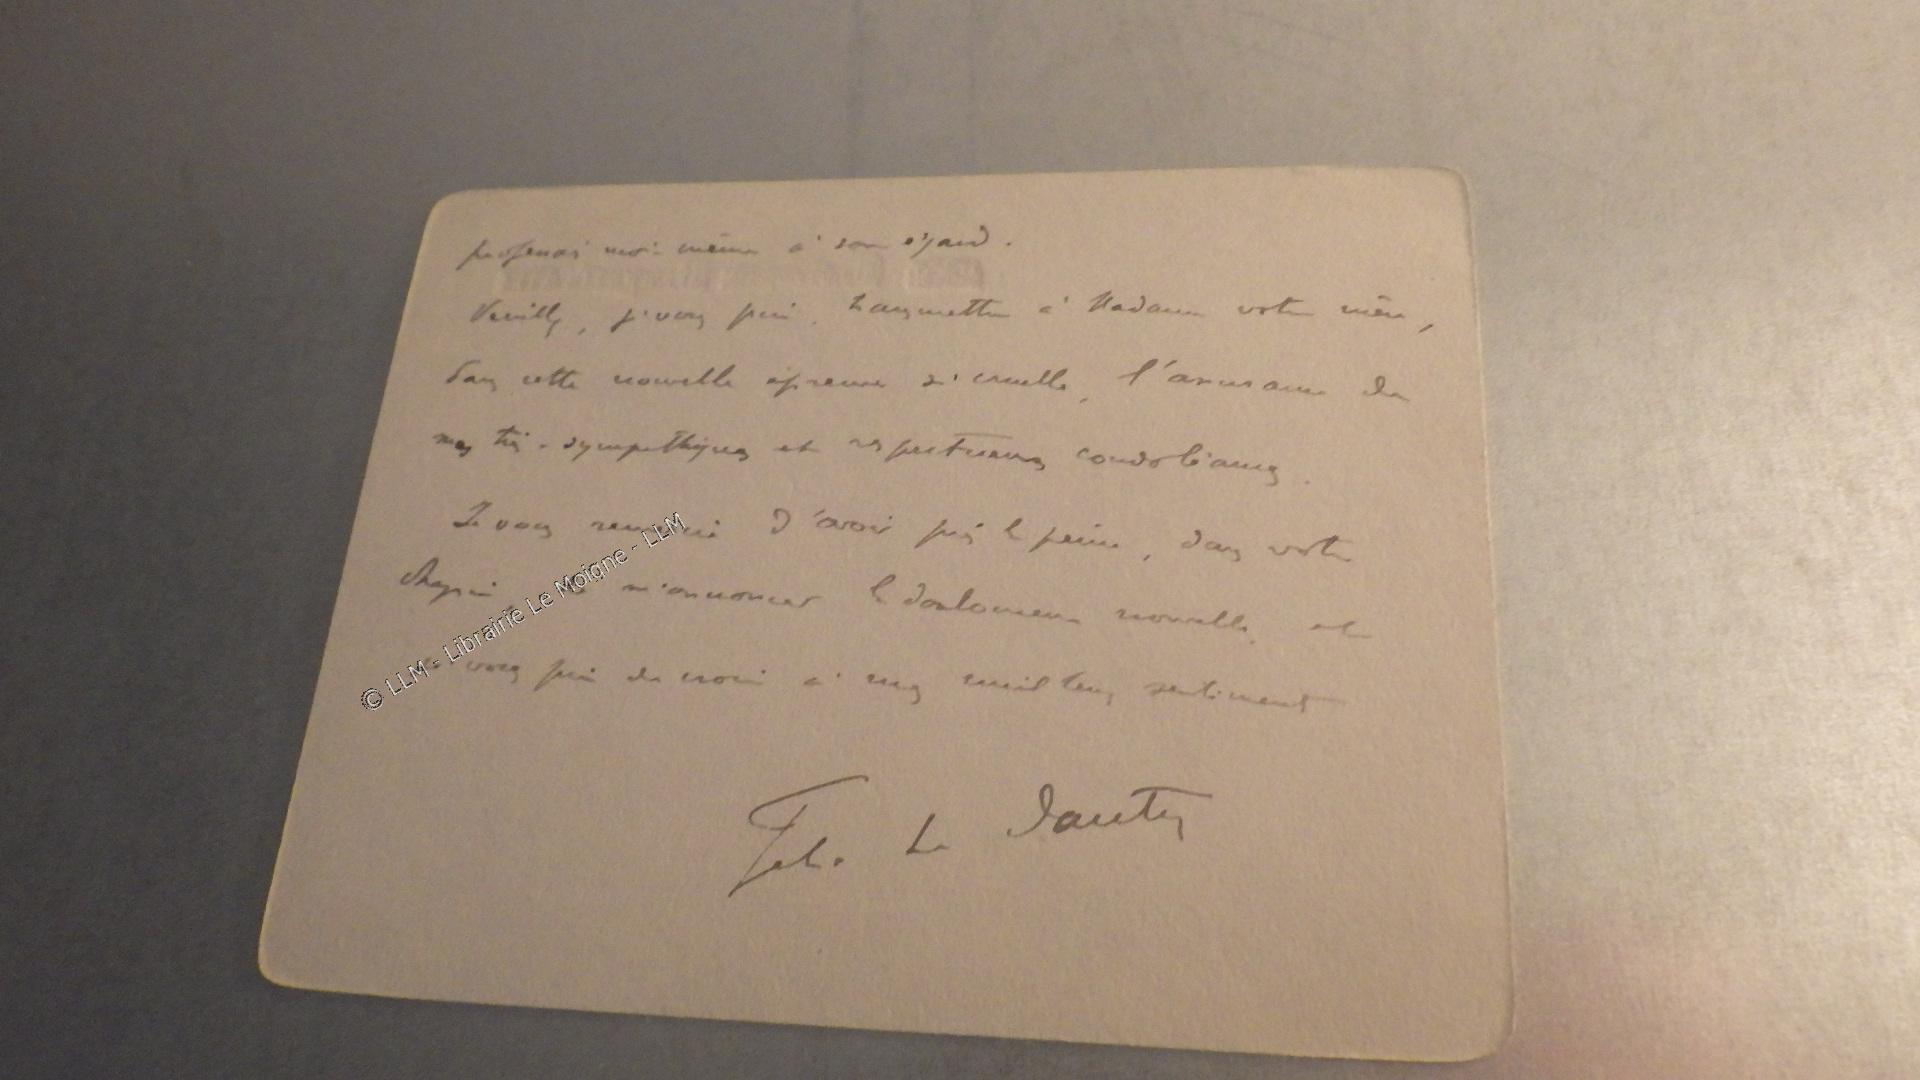 professais moi-même à son égard.
Veuillez, je vous prie, transmettre à Madame votre mère,
dans cette nouvelle épreuve si cruelle, l'assurance de
mes très-sympathiques et respectueuses condoléances.
Je vous remercie d'avoir pris la peine, dans votre
chagrin de m'annoncer la douloureuse nouvelle, et
vous prie de croire à mes meilleurs sentiments
Felix Le Dantec
© LLM - Librairie Le Moigne - LLM